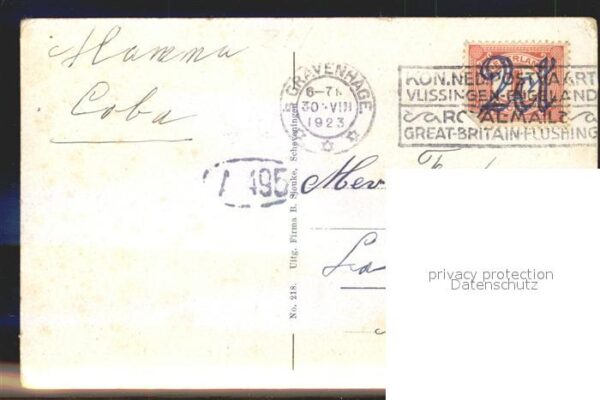 Mamma
Coba
'S GRAVENHAGE
6-7N
30 VIII
1923
2ct
KON. NED. POSTVAART
VLISSINGEN-ENGELAND
ROYAL MAIL
GREAT-BRITAIN-FLUSHING
495
Mev
No. 218. Uitg. Firma B. Sjouke, Scheveningen
privacy protection
Datenschutz